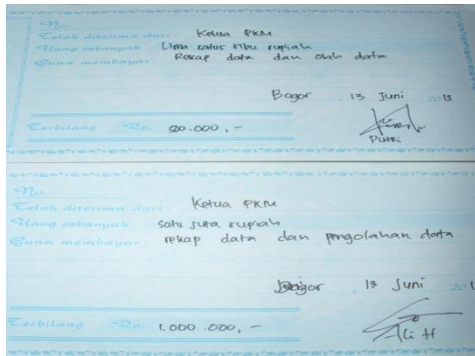 No.
Telah diterima dari Ketua PKM
Uang sebanyak Lima ratus ribu rupiah
Guna membayar Rekap data dan olah data
Bogor, 13 Juni 2013
Terbilang Rp. 500.000,-
Putri
No.
Telah diterima dari Ketua PKM
Uang sebanyak satu juta rupiah
Guna membayar rekap data dan pengolahan data
Bogor, 13 Juni 201
Terbilang Rp. 1.000.000,-
Ali H